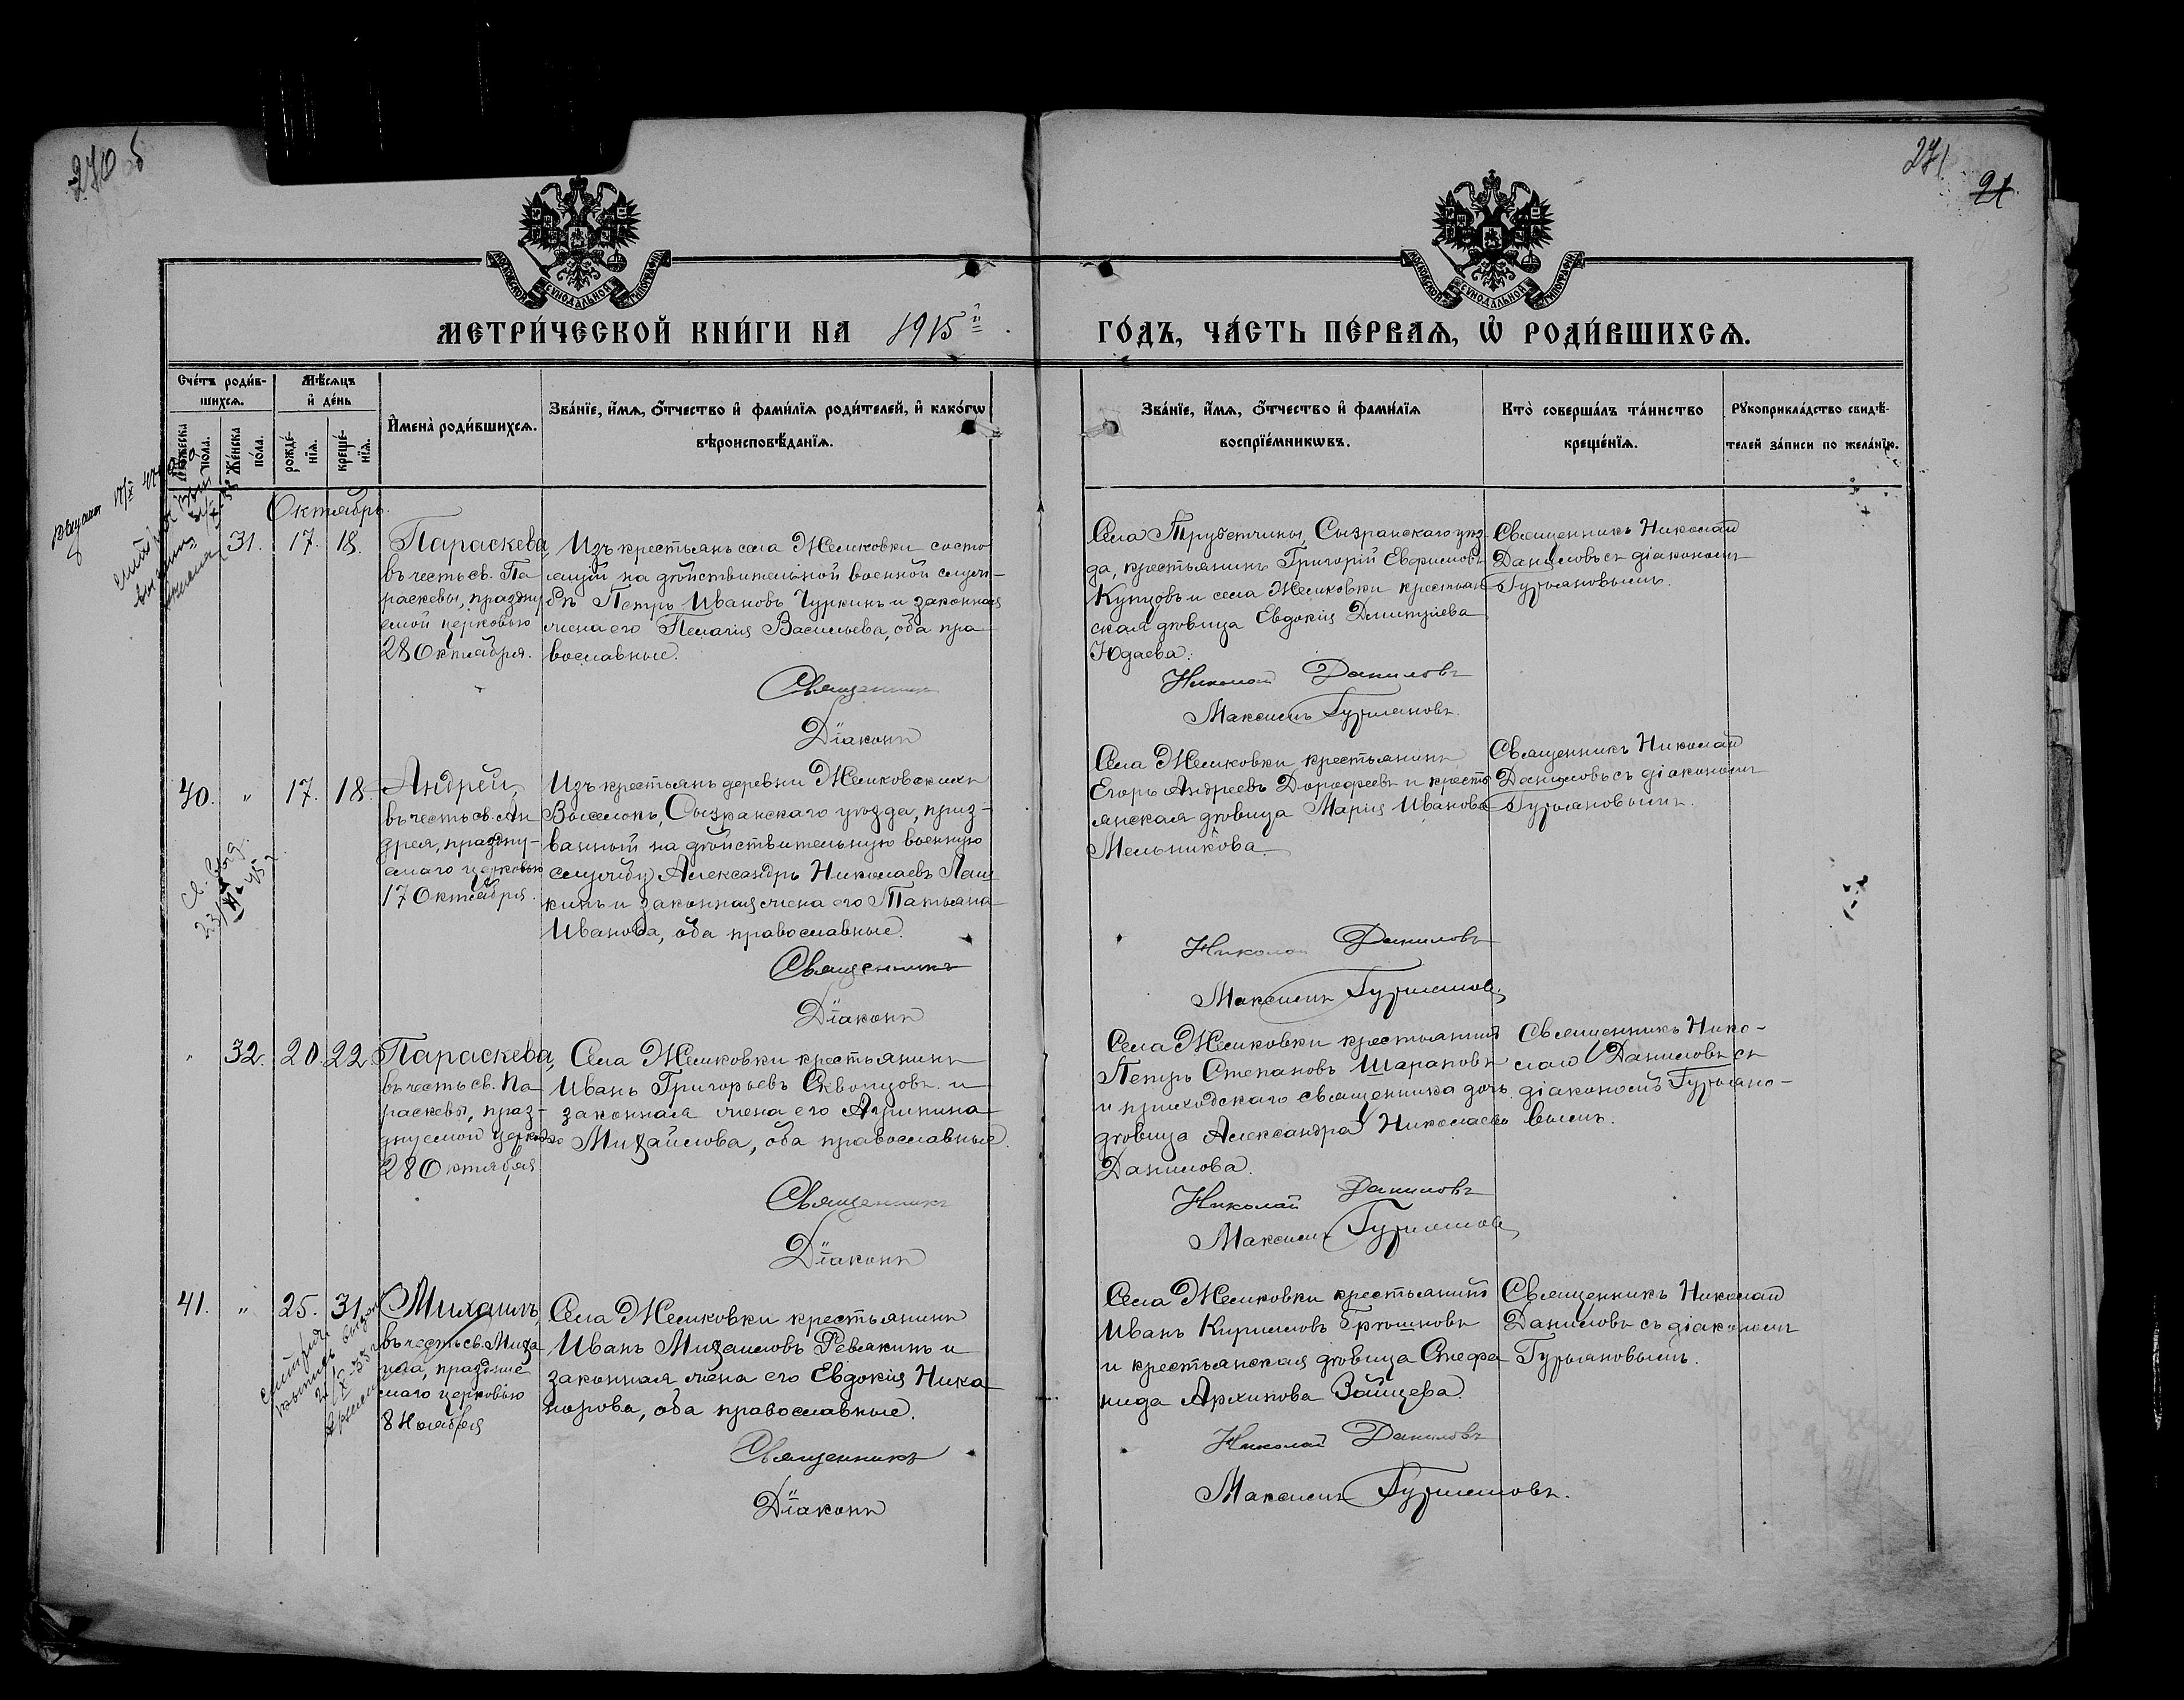 270 б
271
21
МОСКОВСКОЙ СѴНОДАЛЬНОЙ ТИПОГРАФІИ
МОСКОВСКОЙ СѴНОДАЛЬНОЙ ТИПОГРАФІИ
МЕТРИ́ЧЕСКОЙ КНИ́ГИ НА 1915 й
ГО́ДЪ, ЧА́СТЬ ПЕ́РВАЯ, Ѡ҆ РОДИ́ВШИХСЯ.
Сче́тъ роди́в-
шихся.
Мѣ́сяцъ
и҆ де́нь
Мꙋ́жеска
по́ла.
Же́нска
по́ла.
рожде́-
нїя.
креще́-
нїя.
И҆мена̀ роди́вшихся.
Зва́нїе, и҆́мя, ѻ҆́тчество и҆ фами́лїя роди́телей, и҆ како́гѡ
вѣроисповѣ́данїя.
Зва́нїе, и҆́мя, ѻ҆́тчество и҆ фами́лїя
воспрїе́мникѡвъ.
Кто̀ соверша́лъ та́инство
креще́нїя.
Рꙋкоприкла́дство свидѣ́-
телей за́писи по жела́нїю.
Октябрь.
31. 17. 18.
Параскева
въ честь св. Па-
раскевы, праздну
емой церковью
28 Октября.
Изъ крестьянъ села Жемковки состо
ящій на дѣйствительной военной служ-
бѣ Петръ Ивановъ Чуркинъ и законная
жена его Пелагія Васильева, оба пра
вославные.
Священникъ
Діаконъ
Села Трубетчины, Сызранскаго уѣз-
да, крестьянинъ Григорій Евфимовъ
Купцовъ и села Жемковки крестьян
ская дѣвица Евдокія Димитріева
Юдаева.
Николай Даниловъ
Максимъ Гурьяновъ.
Священникъ Николай
Даниловъ съ діакономъ
Гурьяновымъ.
40. " 17. 18.
Андрей,
въ честь св. Ан
дрея, праздну-
емаго церковью
17 Октября.
Изъ крестьянъ деревни Жемковскихъ
Выселокъ, Сызранскаго уѣзда, приз-
ванный на дѣйствительную военную
службу Александръ Николаевъ Лаш
кинъ и законная жена его Татьяна
Иванова, оба православные.
Священникъ
Діаконъ
Села Жемковки крестьянинъ
Егоръ Андреевъ Дорофеевъ и кресть
янская дѣвица Марія Иванова
Мельникова.
Николай Даниловъ
Максимъ Гурьяновъ
Священникъ Николай
Даниловъ съ діакономъ
Гурьяновымъ.
" 32. 20. 22.
Параскева,
въ честь св. Па-
раскевы, праз-
днуемой церковью
28 Октября
Села Жемковки крестьянинъ
Иванъ Григорьевъ Скворцовъ и
законная жена его Агрипина
Михайлова, оба православные.
Священникъ
Діаконъ
Села Жемковки крестьянинъ
Петръ Степановъ Шараповъ
и приходскаго священника дочь
дѣвица Александра Николаева
Данилова.
Николай Даниловъ
Максимъ Гурьяновъ
Священникъ Нико-
лай Даниловъ съ
діакономъ Гурьяно-
вымъ.
41. " 25. 31.
Михаилъ,
въ честь св. Миха
ила, праздние
маго церковью
8 Ноября
Села Жемковки крестьянинъ
Иванъ Михаиловъ Ревякинъ и
законная жена его Евдокія Ника
норова, оба православные.
Священникъ
Діаконъ
Села Жемковки крестьянинъ
Иванъ Кирилловъ Грюшновъ
и крестьянская дѣвица Стефа
нида Архипова Зайцева.
Николай Даниловъ
Максимъ Гурьяновъ.
Священникъ Николай
Даниловъ съ діакономъ
Гурьяновымъ.